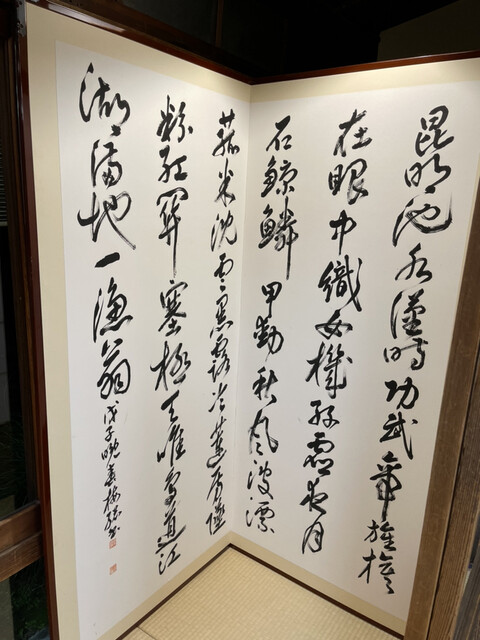 昆明池水漢時功武帝旌旗
在眼中織女機絲虛夜月
石鯨鱗甲動秋風波漂
菰米沈雲黒露冷蓮房墜
粉紅關塞極天唯鳥道江
湖满地一漁翁
戊子晩春梅書